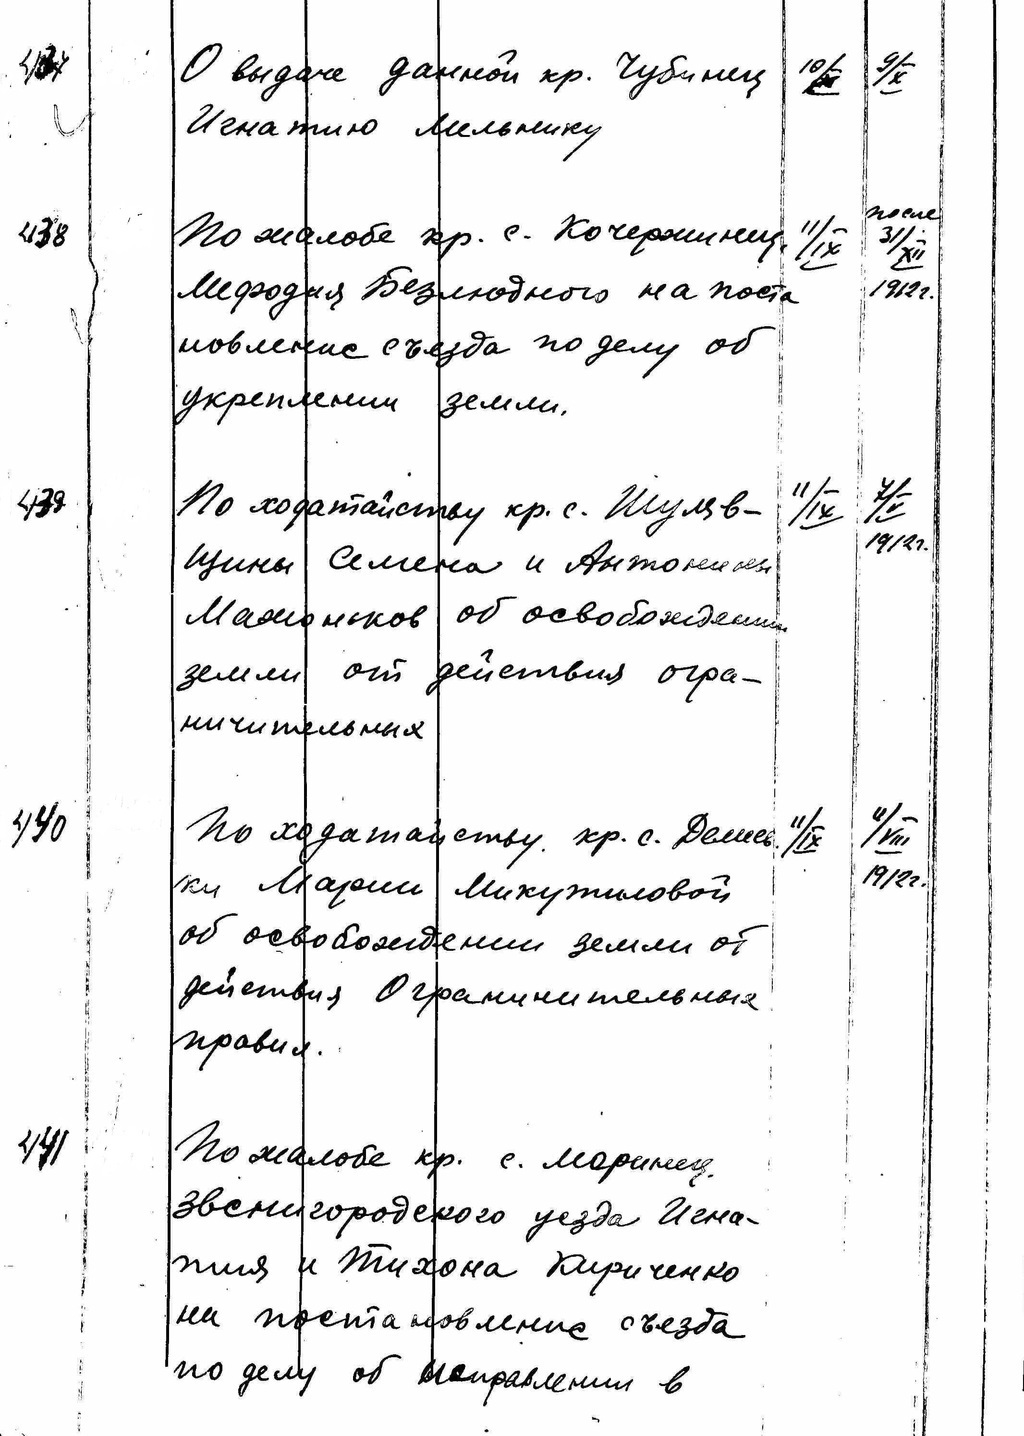 437 О выдаче данной кр. Чубинец 10/IX 9/X
Игнатию Мельнику
438 По жалобе кр. с. Кочержинец, 11/IX после 31/XII 1912 г.
Мефодия Безлюдного на поста
новление съезда по делу об
укреплении земли.
439 По ходатайству кр. с. Шуляв- 11/IX 7/V 1912 г.
щины Семена и Антонины
об освобождении
земли от действия огра-
ничительных
440 По ходатайству кр. с. 11/IX 11/VIII 1912 г.
ки Марии
об освобождении земли от
действия Ограничительных
правил.
441 По жалобе кр. с. Моринец,
Звенигородского уезда Игна-
тия и Тихона Кириченко
на постановление съезда
по делу об исправлении в